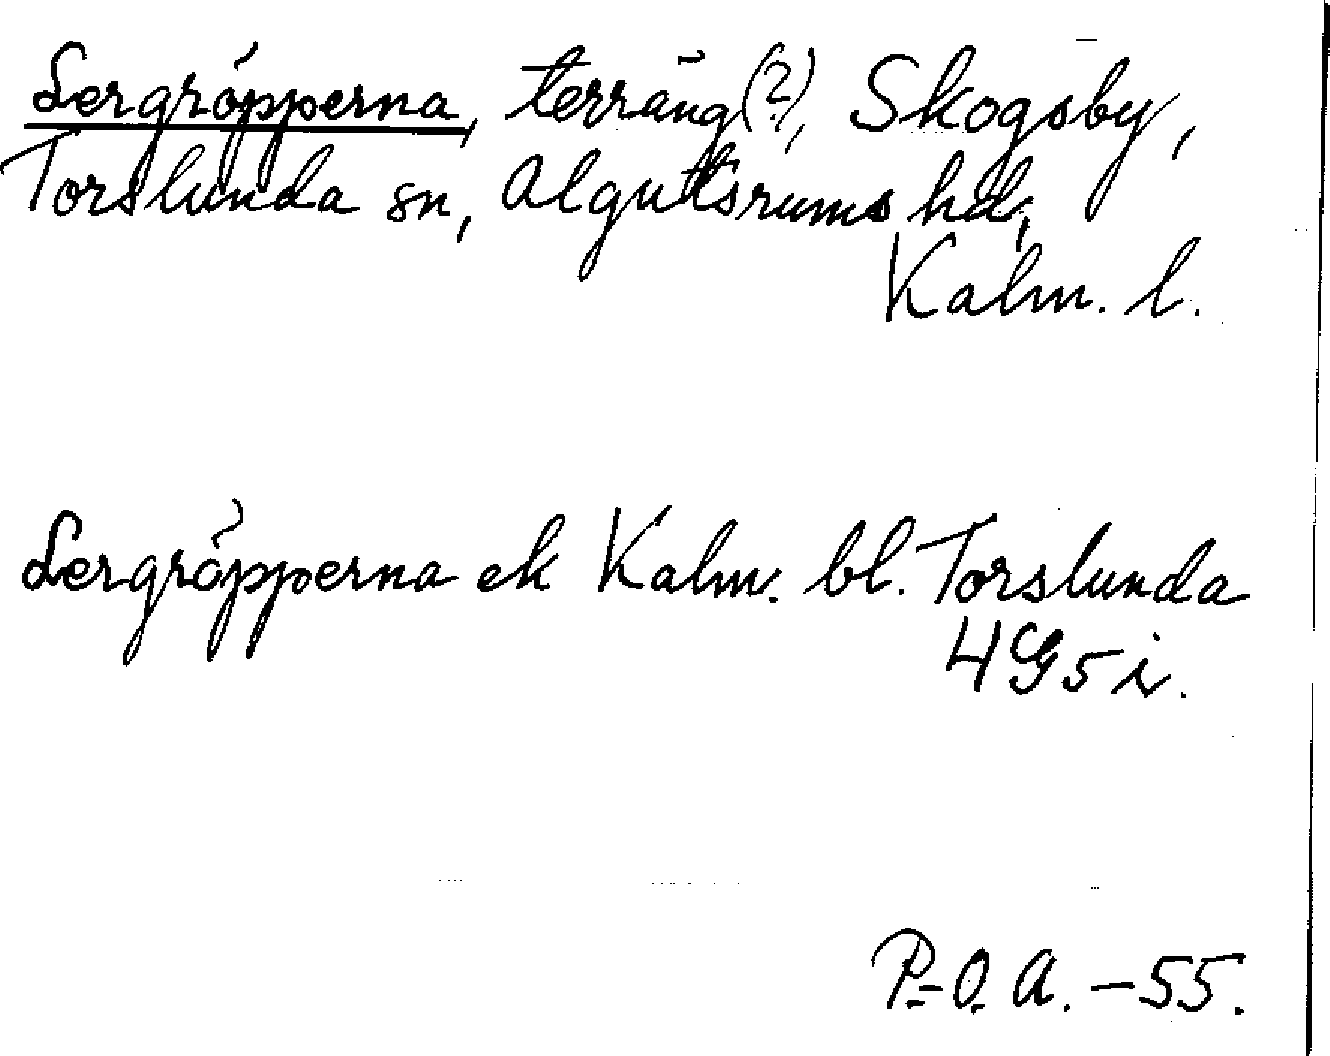 Lergröpperna, terräng(?), Skogsby,
Torslunda sn, Algutsrums hd,
Kalm. l.
Lergröpperna ek Kalm. bl. Torslunda
4G5i.
P.-O. A. -55.